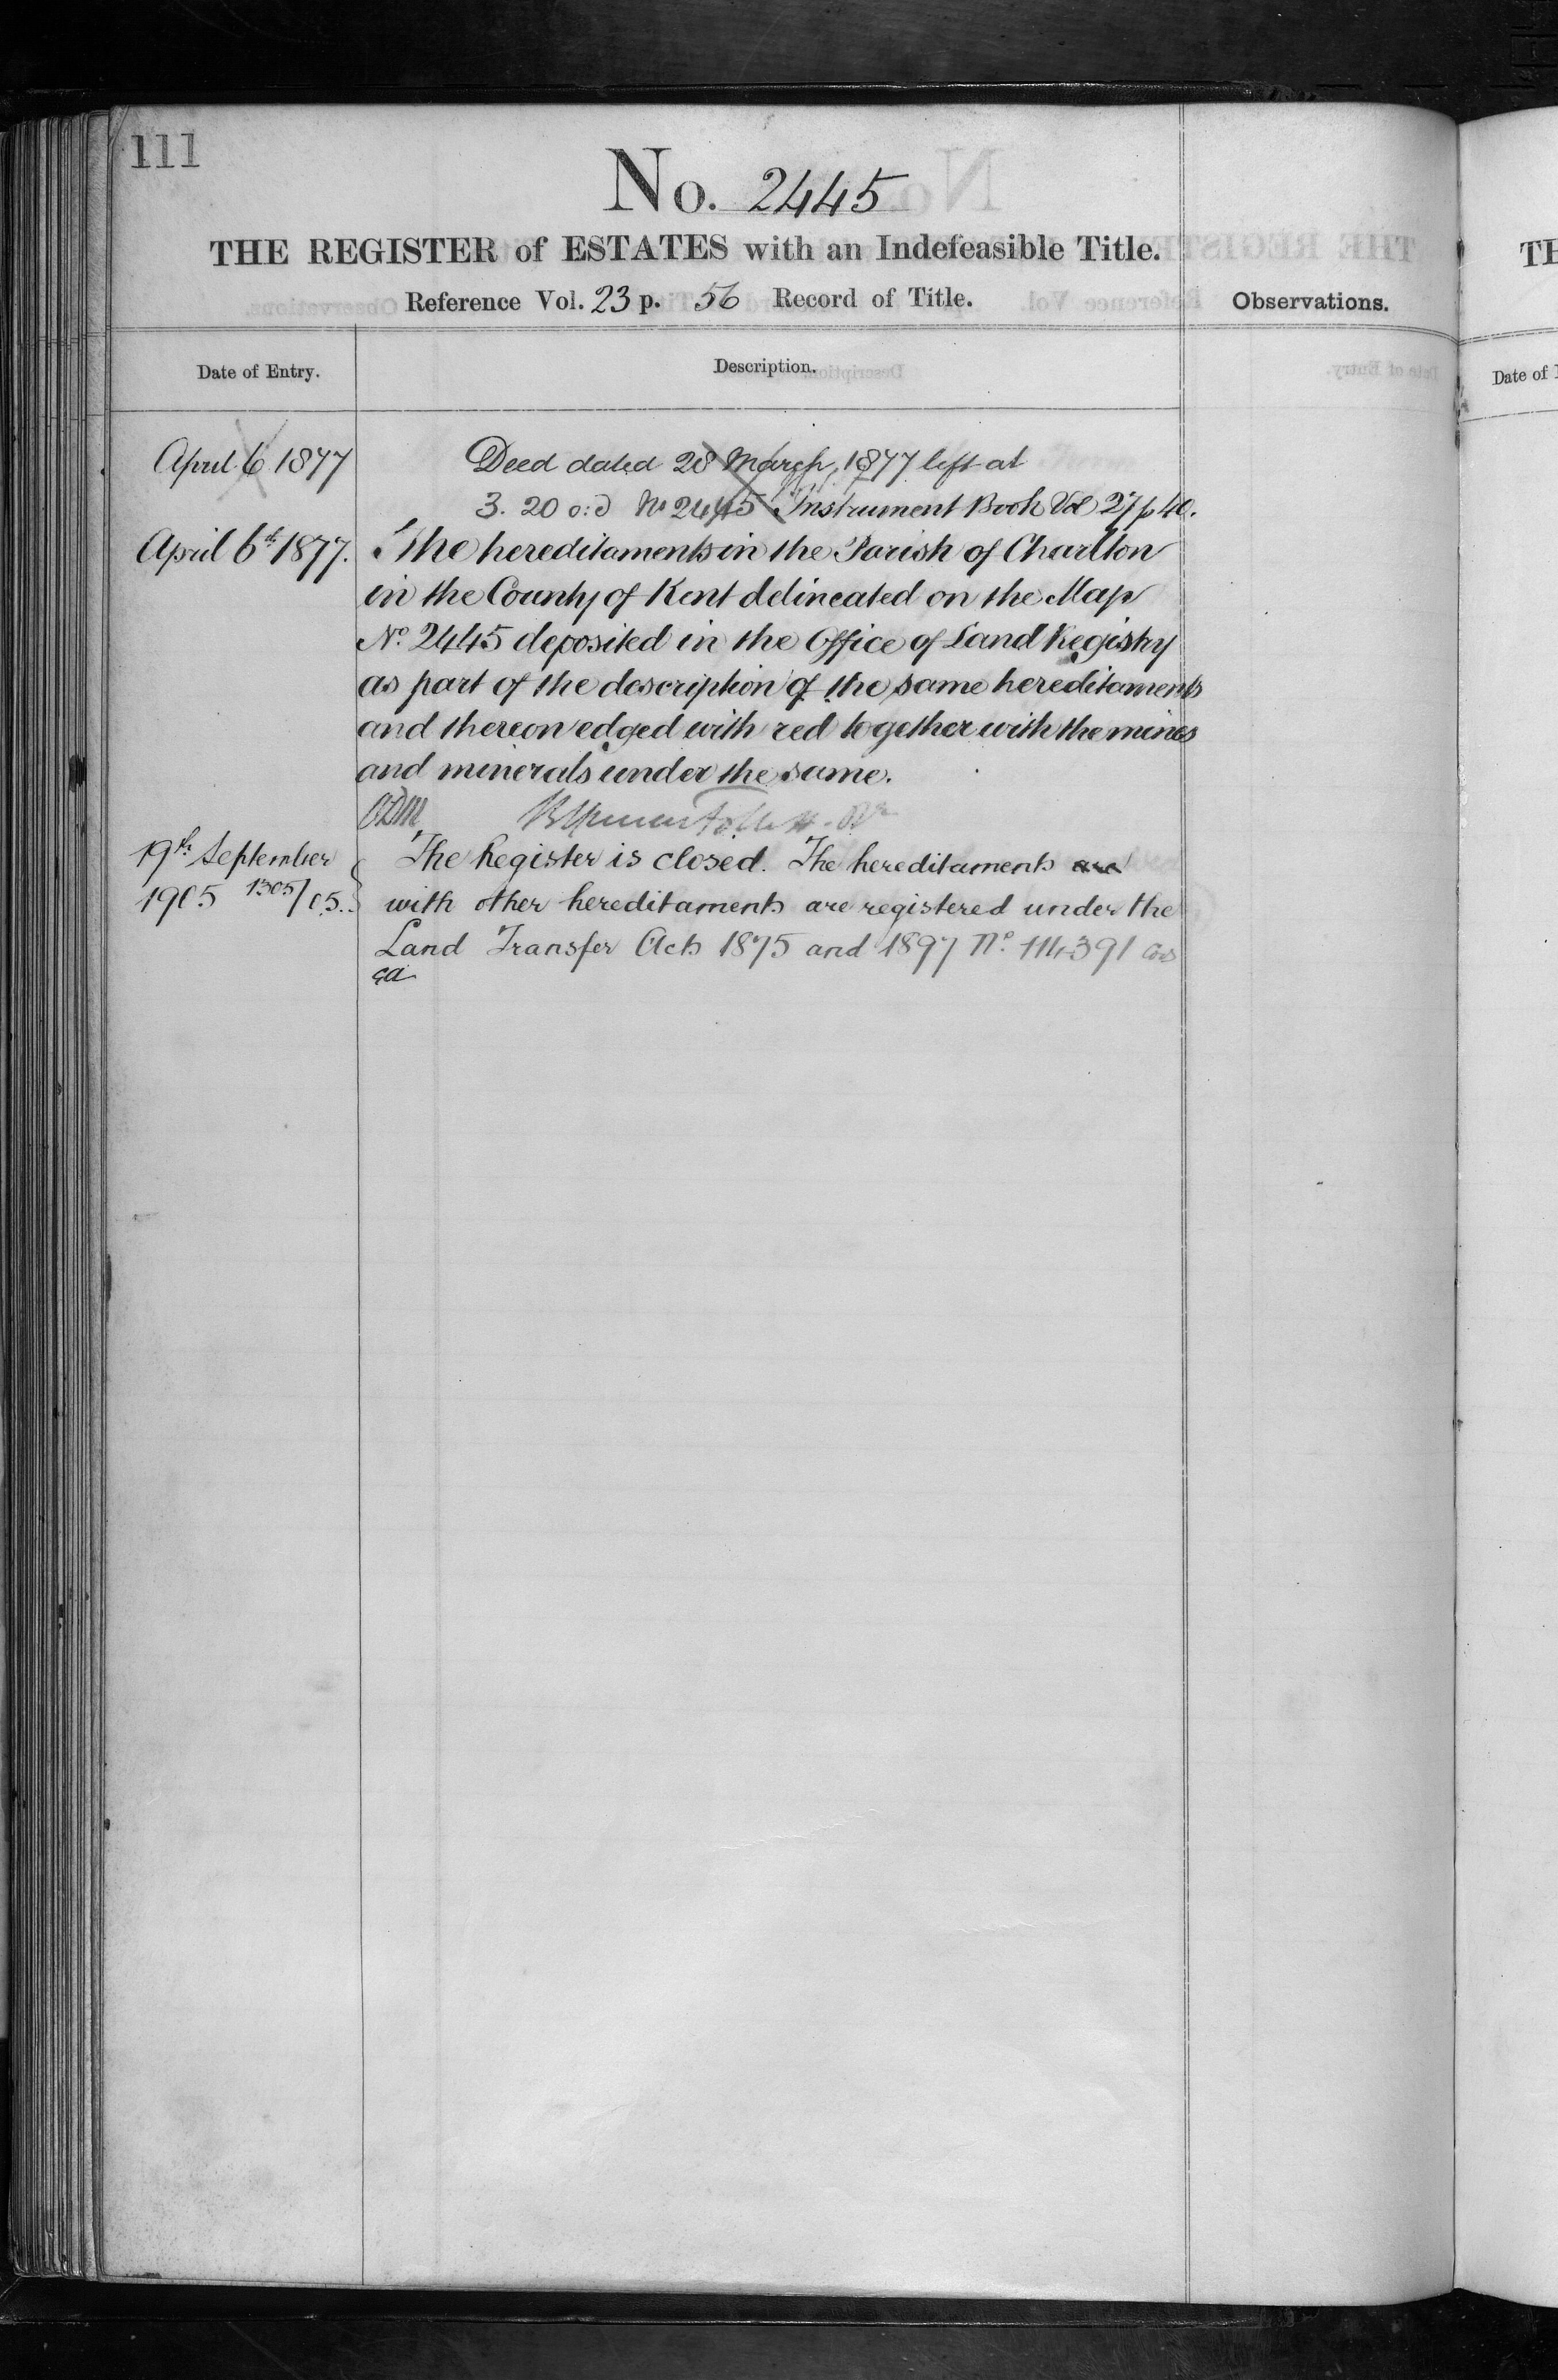 111
No. 2445
THE REGISTER of ESTATES with an Indefeasible Title.
Reference Vol. 23 p. 56 Record of Title.
Observations.
Date of Entry.
Description.
April 6 1877
Deed dated 28 March, 1877 left at
3. 20 o:d No 2445 Instrument Book Vol 27 p 40.
April 6th 1877.
The hereditaments in the Parish of Charlton
in the County of Kent delineated on the Map
No. 2445 deposited in the Office of Land Registry
as part of the description of the same hereditaments
and thereon edged with red together with the mines
and minerals under the same.
19th September
1905 1305/05.
The Register is closed. The hereditaments are
with other hereditaments are registered under the
Land Transfer Acts 1875 and 1897 No. 114391
TH
Date of